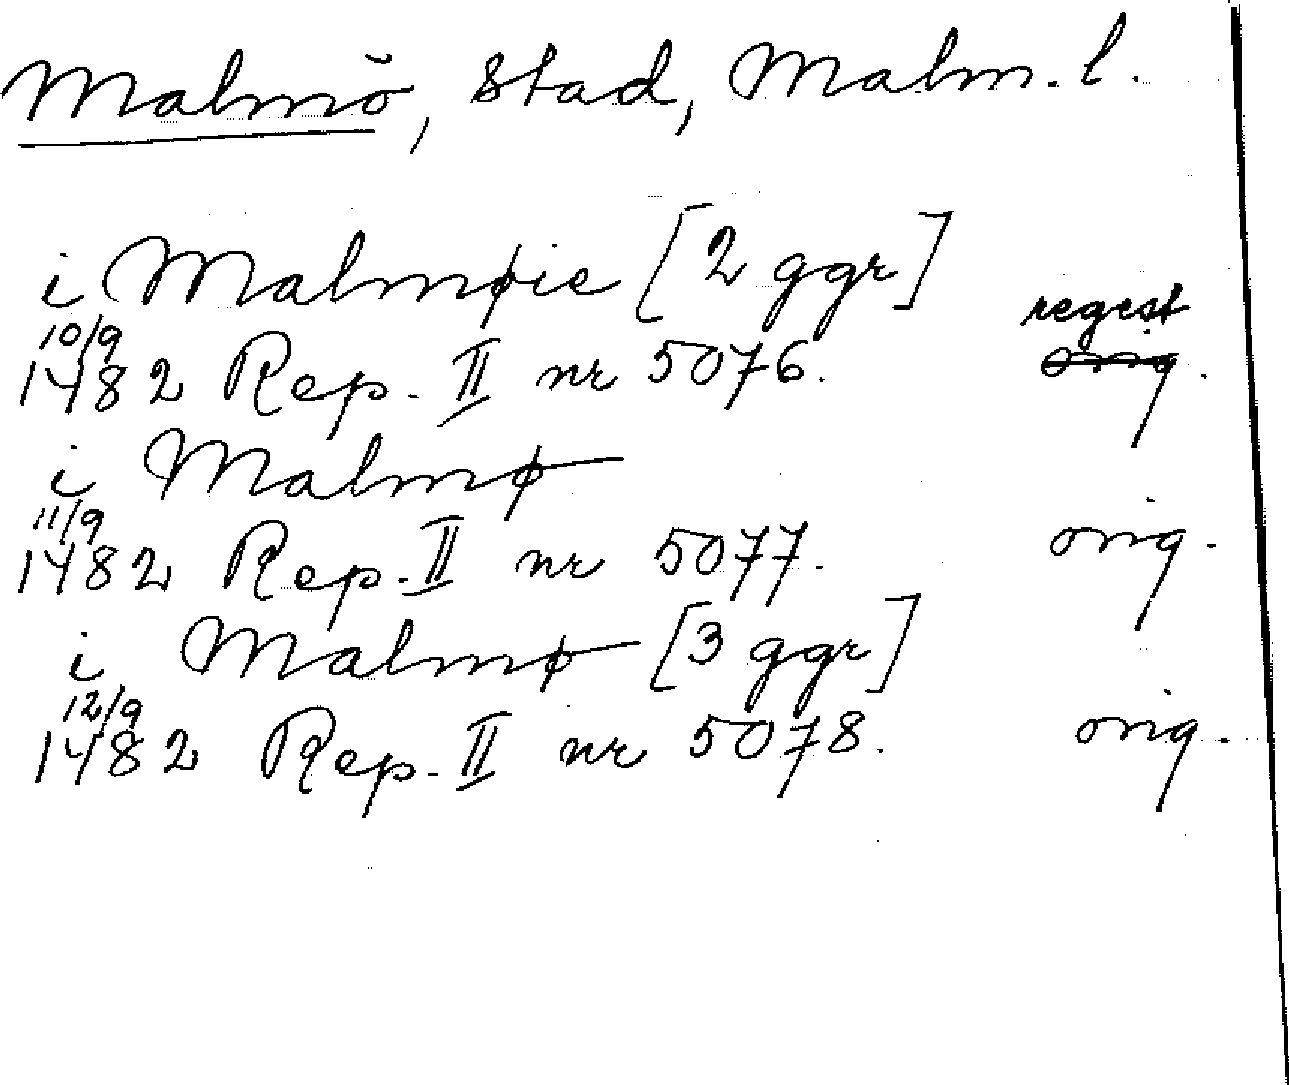 Malmö, Stad, Malm. l.
i Malmøie [2 ggr]
regest
10/9
1482 Rep. II nr 5076. orig.
i Malmø
11/9
1482 Rep. II nr 5077. orig.
i Malmø [3 ggr]
12/9
1482 Rep. II nr 5078. orig.